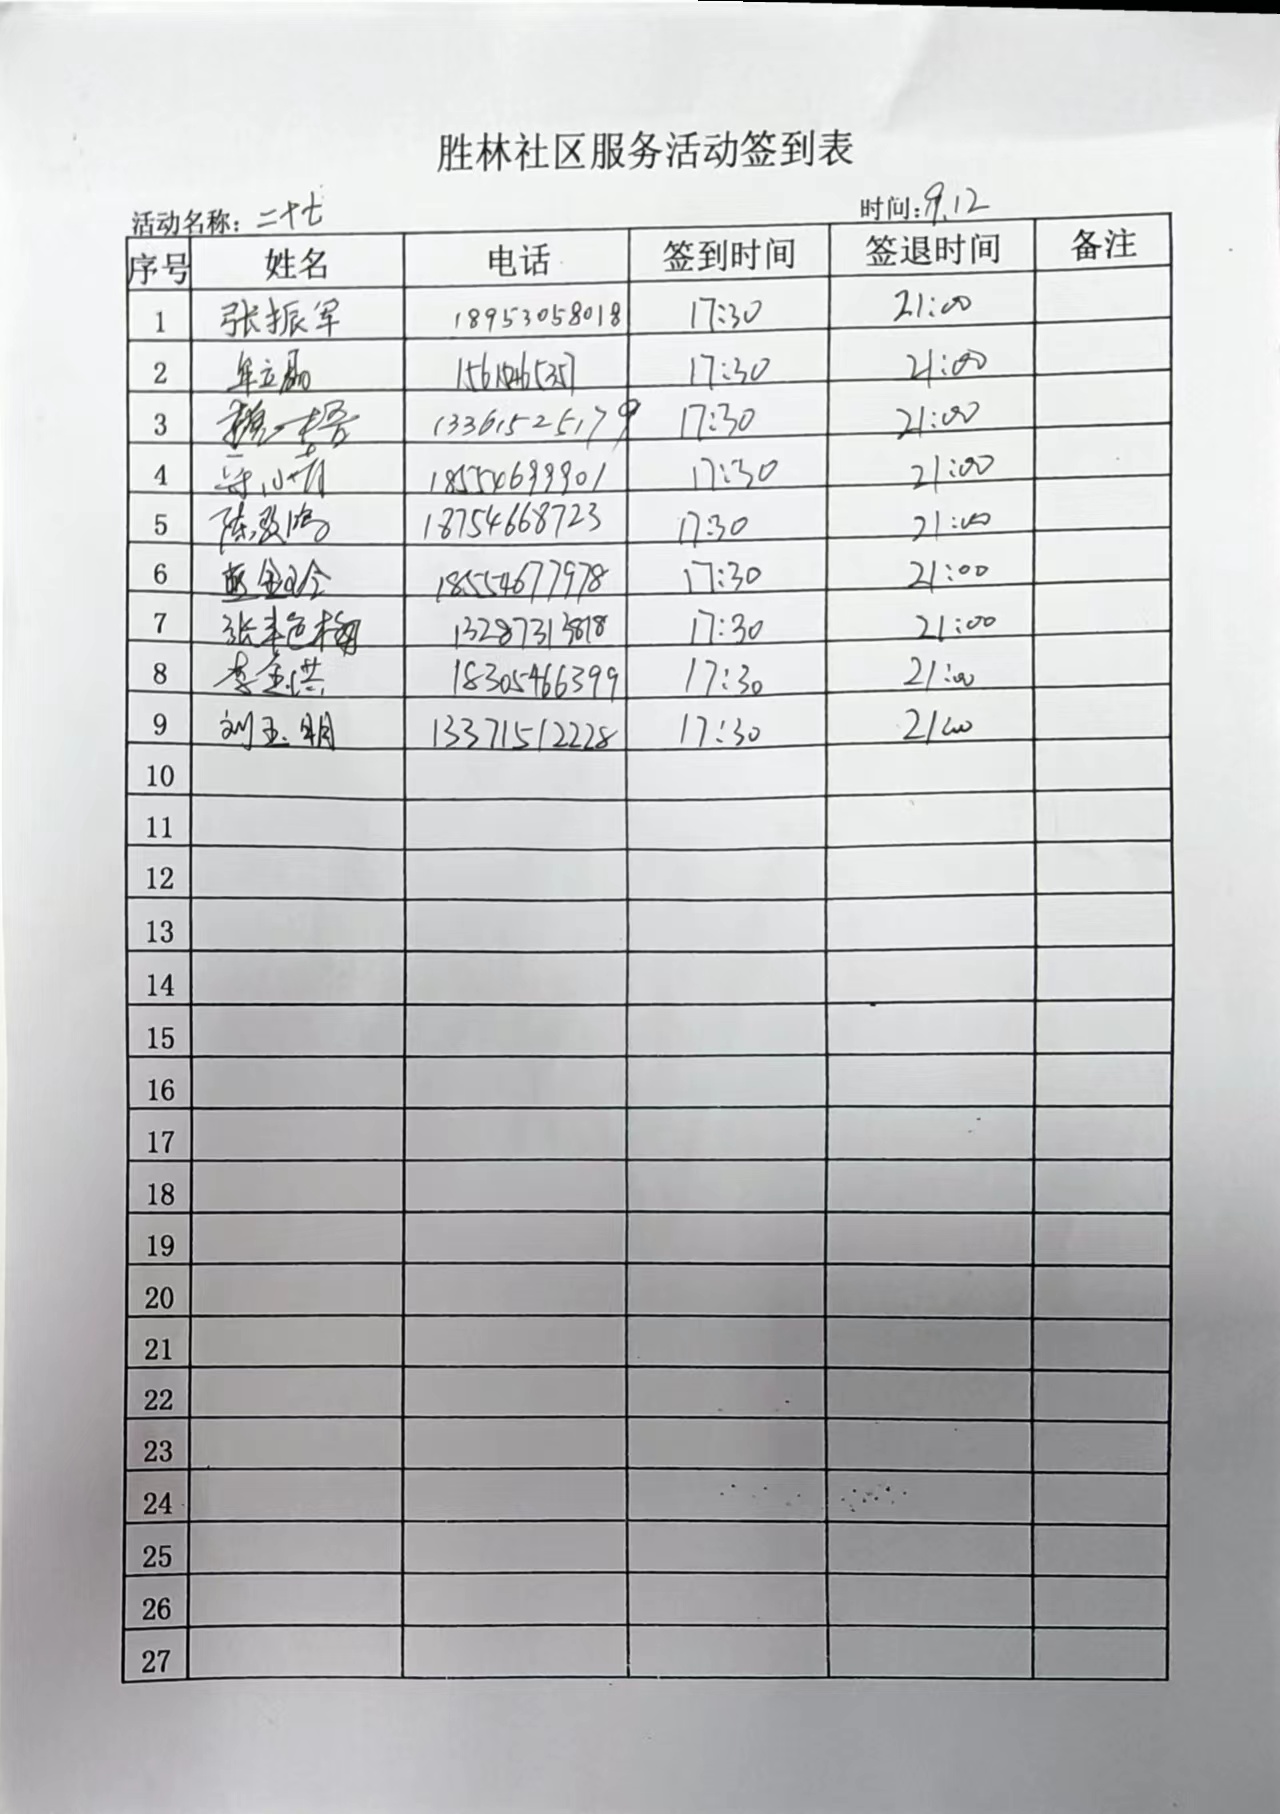 胜林社区服务活动签到表
活动名称: 二十七 时间: 9.12
序号 姓名 电话 签到时间 签退时间 备注
1 张振军 18953058018 17:30 21:00
2 17:30 21:00
3 13361525179 17:30 21:00
4 17:30 21:00
5 18754668723 17:30 21:00
6 18554677978 17:30 21:00
7 17:30 21:00
8 李金洪 18305466399 17:30 21:00
9 刘玉明 13371512228 17:30 21:00
10
11
12
13
14
15
16
17
18
19
20
21
22
23
24
25
26
27